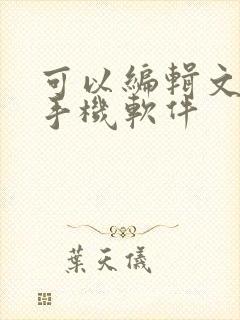 可以編輯文
手機軟件
葉天儀